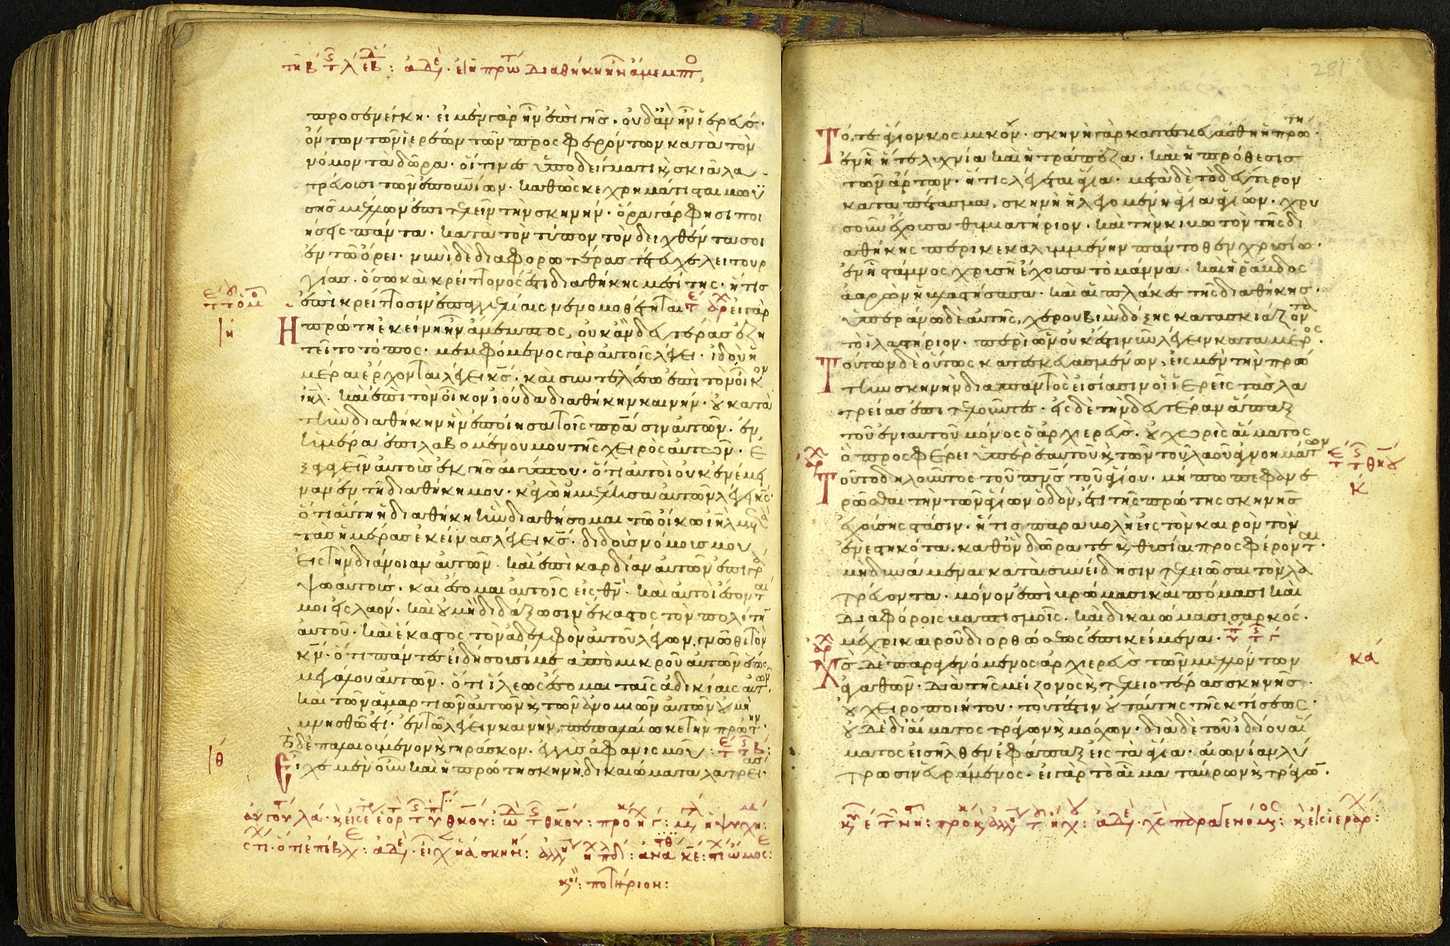 προσενέγκη· εἰ μὲν γὰρ ἦν ἐπὶ γῆς· οὐδ' ἂν ἦν ἱερεύς·
ὄντων τῶν ἱερέων τῶν προσφερόντων κατὰ τὸν
νόμον τὰ δῶρα· οἵτινες ὑποδείγματι καὶ σκιᾶ λα
τρεύουσι τῶν ἐπουνίων· καθὼς κεχρημάτισται μωϋ
σῆς μέλλων ἐπιτελεῖν τὴν σκηνήν· ὅρα γάρ φησι ποι
ήσεις πάντα· κατὰ τὸν τύπον τὸν δειχθέντα σοι
ἐν τῶ ὄρει· νυνὶ δὲ διαφορωτέρας τέτευχε λειτουρ
γίας· ὅσω καὶ κρείττονός ἐστι διαθήκης μεσίτης· ἥτις
ἐπὶ κρείττοσιν ἐπαγγελίαις νενομοθέτηται εἰ γὰρ
Ἡ πρώτη ἐκείνη ἦν ἄμεμπτος, οὐκ ἂν δευτέρας ἐζη
τεῖτο τόπος· μεμφόμενος γὰρ αὐτοῖς λέγει· ἰδοὺ ἡ
μέραι ἔρχονται λέγει κς· καὶ συντελέσω ἐπὶ τὸν οἶκον
ιηλ· καὶ ἐπὶ τὸν οἶκον ἰούδα διαθήκην καινήν· οὐ κατὰ
τὴν διαθήκην ἣν ἐποίησα τοῖς πράσιν αὐτῶν· ἐν
ἡμέρα ἐπιλαβομένου μου τῆς χειρὸς αὐτῶν· ἐ
ξαγαγεῖν αὐτοὺς ἐκ γῆς αἰγύπτου· ὅτι αὐτοὶ οὐκ ἐνέμει
ναν ἐν τῆ διαθήκη μου· κἀγὼ ἠμέλησα αὐτῶν λέγει κς·
ὅτι αὕτη ἡ διαθήκη ἣν διαθήσομαι τῶ οἴκω ιηλ μετὰ
τὰς ἡμέρας ἐκείνας λέγει κς· διδοὺς νόμους μου
εἰς τὴν διάνοιαν αὐτῶν· καὶ ἐπὶ καρδίαν αὐτῶν ἐπιγρά
ψω αὐτούς· καὶ ἔσομαι αὐτοῖς εἰς θν· καὶ αὐτοὶ ἔσονταί
μοι εἰς λαόν· καὶ οὐ μὴ διδάξωσιν ἕκαστος τὸν πολίτην
αὐτοῦ· καὶ ἕκαστος τὸν ἀδελφὸν αὐτοῦ λέγων, γνῶθι τὸν
κν· ὅτι πάντες εἰδήσουσί με ἀπὸ μικροῦ αὐτῶν ἕως
μεγάλου αὐτῶν· ὅτι ἵλεως ἔσομαι ταῖς ἀδικίαις αὐτῶν
καὶ τῶν ἁμαρτιῶν αὐτῶν καὶ τῶν ἀνομιῶν αὐτῶν οὐ μὴ
μνησθῶ ἔτι· ἐν τῶ λέγειν καινὴν, πεπαλαίωκε τὴν πρώτην
τὸ δὲ παλαιούμενον καὶ γηράσκον· ἐγγὺς ἀφανισμοῦ:
ιθ
Εἶχε μὲν οὖν καὶ ἡ πρώτη σκηνὴ δικαιώματα λατρείας·
ποτήριον:
281
Τό, τε ἅγιον κοσμικόν· σκηνὴ γὰρ κατεσκευάσθη ἡ πρώτη·
ἐν ἧ ἥ τε λυχνία καὶ ἡ τράπεζα· καὶ ἡ πρόθεσις
τῶν ἄρτων· ἥτις λέγεται ἅγια· μετὰ δὲ τὸ δεύτερον
καταπέτασμα, σκηνὴ ἡ λεγομένη ἅγια ἁγίων· χρυ
σοῦν ἔχουσα θυμιατήριον· καὶ τὴν κιβωτὸν τῆς δι
αθήκης περικεκαλυμμένην πάντοθεν χρυσίω·
ἐν ἧ στάμνος χρυσῆ ἔχουσα τὸ μάννα· καὶ ἡ ῥάβδος
ἀαρὼν ἡ βλαστήσασα· καὶ αἱ πλάκες τῆς διαθήκης·
ὑπεράνω δὲ αὐτῆς, χερουβὶμ δόξης κατασκιάζοντα
τὸ ἱλαστήριον· περὶ ὧν οὐκ ἔστιν νῦν λέγειν κατὰ μέρος·
Τούτων δὲ οὕτως κατεσκευασμένων, εἰς μὲν τὴν πρώ
την σκηνὴν διαπαντὸς εἰσίασιν οἱ ἱερεῖς τὰς λα
τρείας ἐπιτελοῦντες· εἰς δὲ τὴν δευτέραν ἅπαξ
τοῦ ἐνιαυτοῦ μόνος ὁ ἀρχιερεύς· οὐ χωρὶς αἵματος
ὃ προσφέρει ὑπὲρ ἑαυτοῦ καὶ τῶν τοῦ λαοῦ ἀγνοημάτων
Τοῦτο δηλοῦντος τοῦ πνς τοῦ ἁγίου· μήπω πεφανε
ρῶσθαι τὴν τῶν ἁγίων ὁδὸν, ἔτι τῆς πρώτης σκηνῆς
ἐχούσης στάσιν· ἥτις παραβολὴ εἰς τὸν καιρὸν τὸν
ἐνεστηκότα· καθ' ὃν δῶρά τε καὶ θυσίαι προσφέρονται·
μὴ δυνάμεναι κατὰ συνείδησιν τελειῶσαι τὸν λα
τρεύοντα· μόνον ἐπὶ βρώμασι καὶ πόμασι καὶ
διαφόροις βαπτισμοῖς· καὶ δικαιώμασι σαρκός·
μέχρι καιροῦ διορθώσεως ἐπικείμενα·
κα
Χς δὲ παραγενόμενος ἀρχιερεὺς τῶν μελλόντων
ἀγαθῶν· διὰ τῆς μείζονος καὶ τελειοτέρας σκηνῆς·
οὐ χειροποιήτου· τουτέστιν οὐ ταύτης τῆς κτίσεως·
οὐδὲ δι' αἵματος τράγων καὶ μόσχων· διὰ δὲ τοῦ ἰδίου αἵ
ματος εἰσῆλθεν ἐφάπαξ εἰς τὰ ἅγια· αἰωνίαν λύ
τρωσιν εὑράμενος· εἰ γὰρ τὸ αἷμα ταύρων καὶ τράγων·